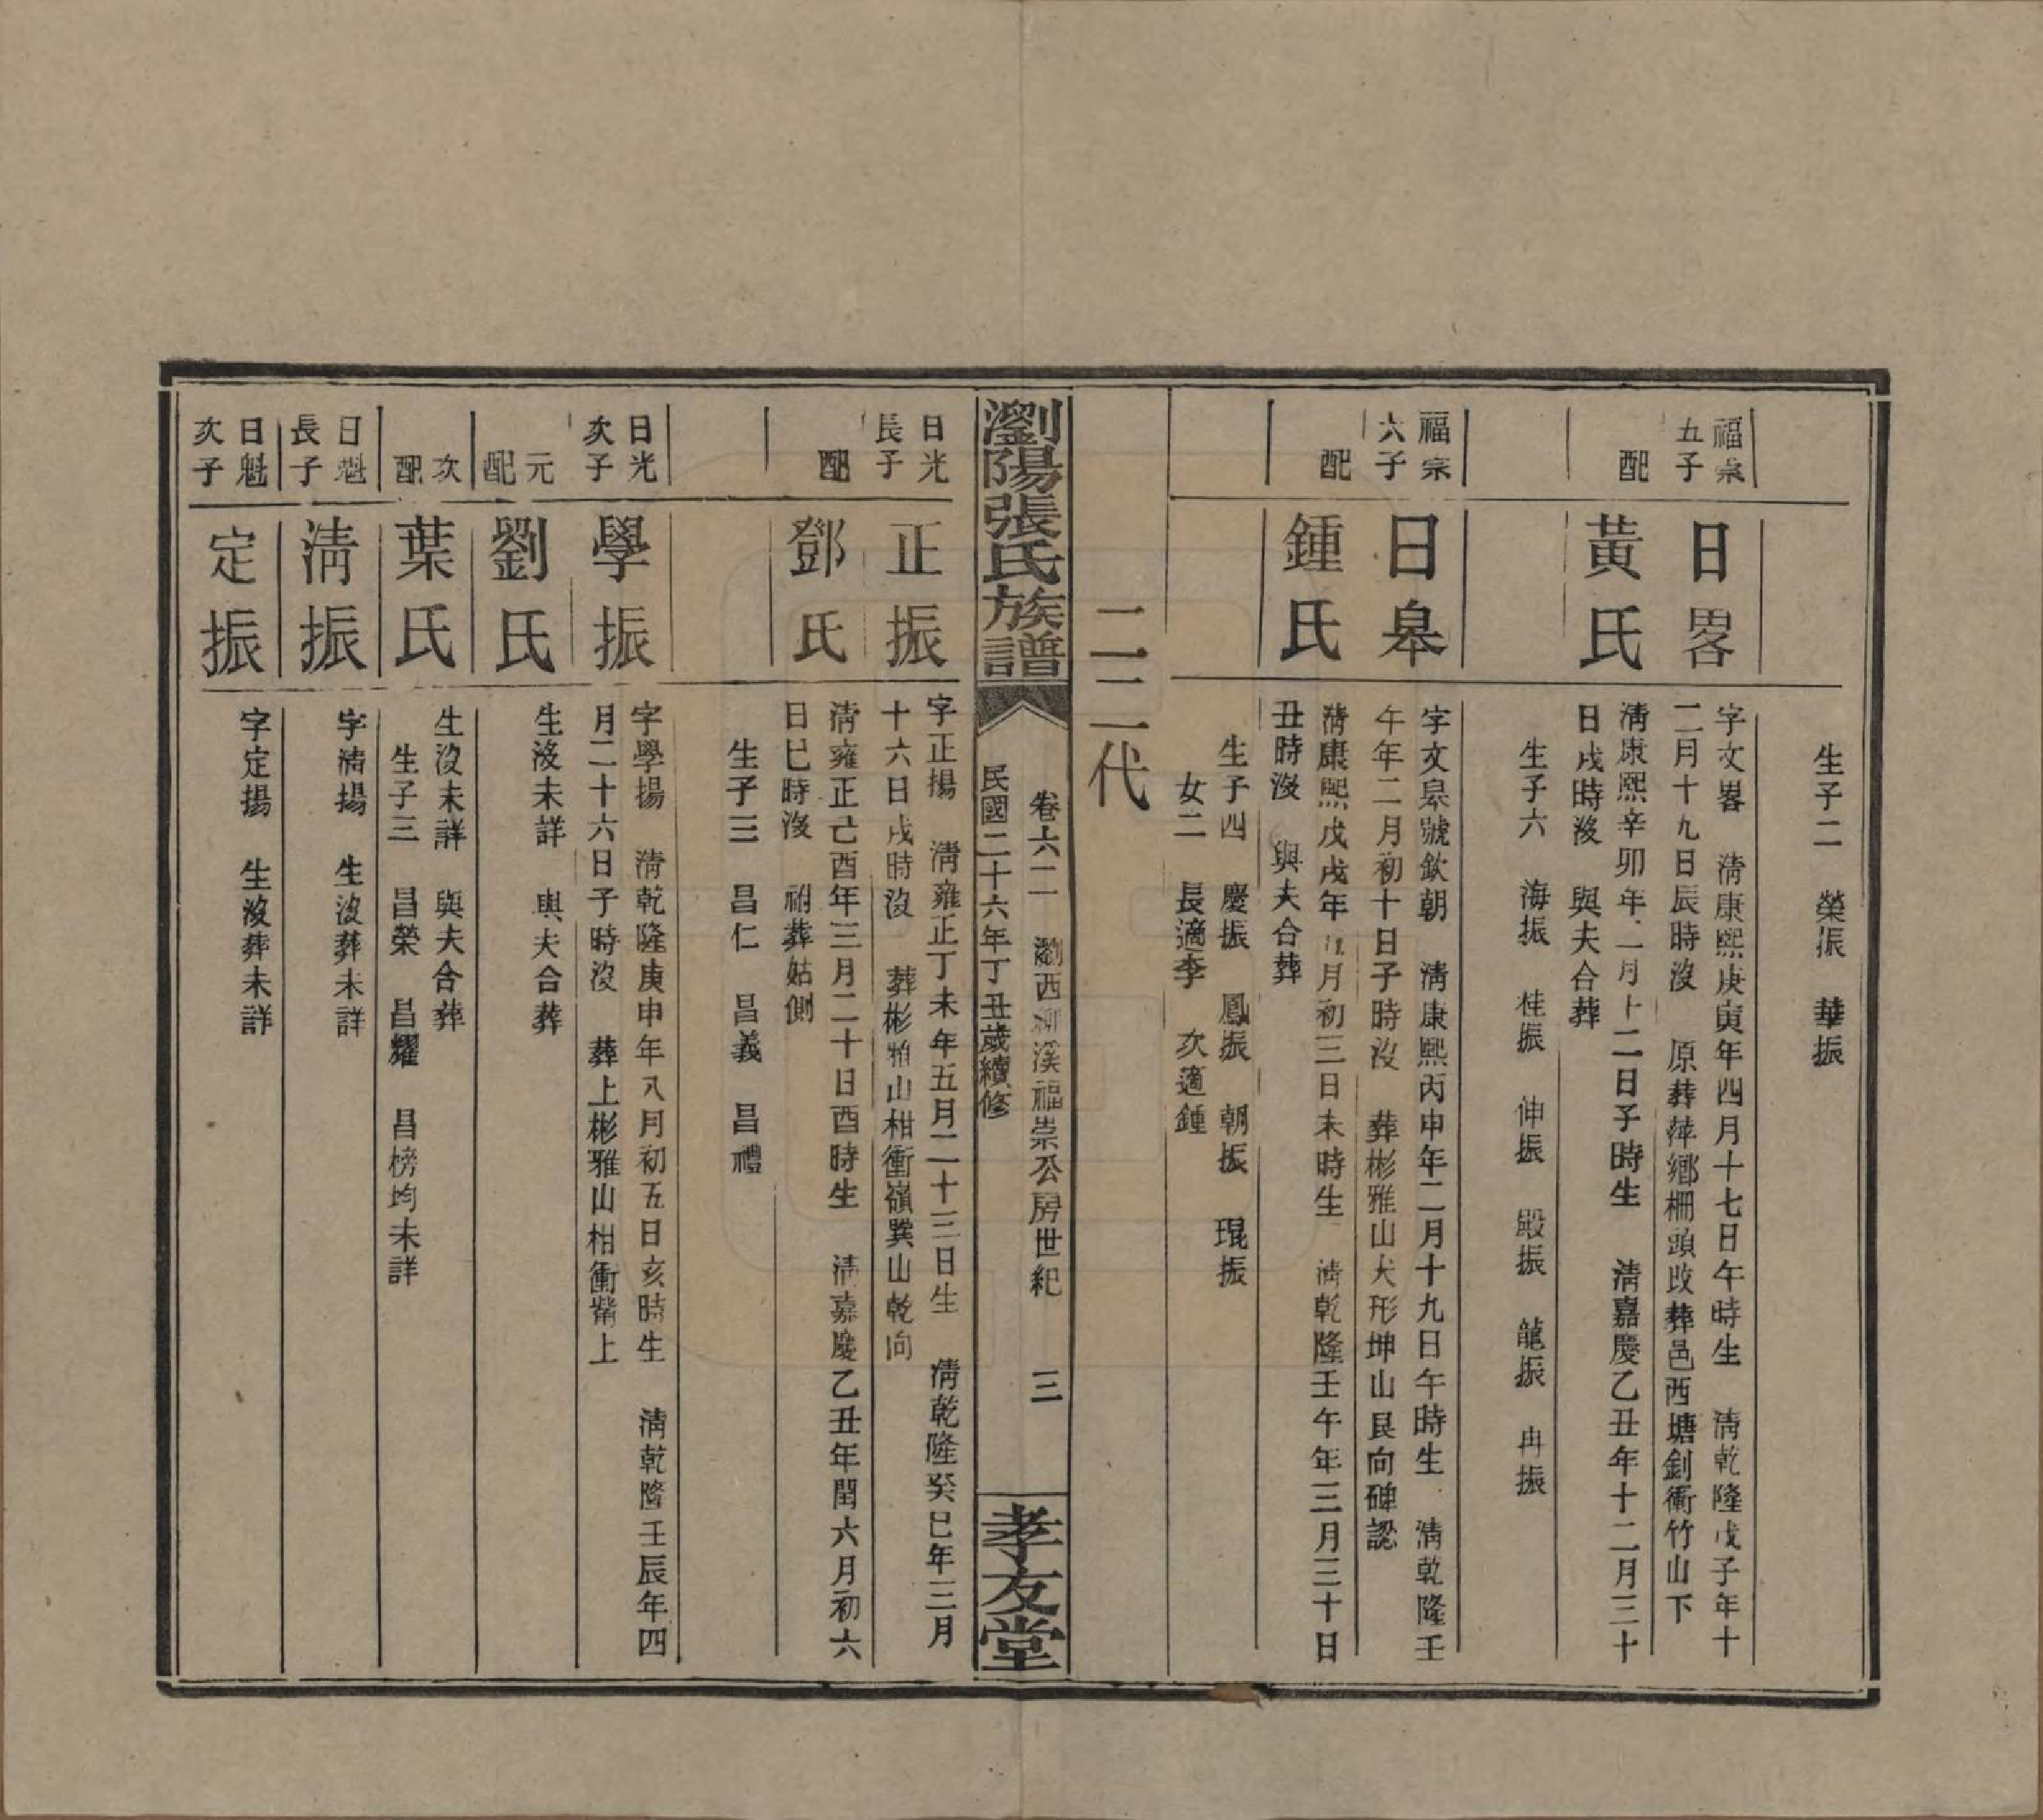 生子二 榮振 華振
福崇五子
日畧
字文畧 淸康熙庚寅年四月十七日午時生 淸乾隆戊子年十
二月十九日辰時沒 原葬萍鄉柵頭改葬邑西塘釗衝竹山下
配
黃氏
淸康熙辛卯年二月十二日子時生 淸嘉慶乙丑年十二月三十
日戌時沒 與夫合葬
生子六 海振 桂振 伸振 殿振 龍振 冉振
福崇六子
日皋
字文皋號欽朝 淸康熙丙申年二月十九日午時生 淸乾隆壬
午年二月初十日子時沒 葬彬雅山犬形坤山艮向碑認
配
鍾氏
淸康熙戊戌年 月初三日未時生 淸乾隆壬午年三月三十日
丑時沒 與夫合葬
生子四 慶振 鳳振 朝振 琨振
女二 長適李 次適鍾
二二代
瀏陽張氏族譜
卷六二 瀏西柳溪福崇公房世紀 三
民國二十六年丁丑歲續修
孝友堂
日光長子
正振
字正揚 淸雍正丁未年五月二十三日生 淸乾隆癸巳年三月
十六日戌時沒 葬彬雅山柑衝嶺巽山乾向
配
鄧氏
淸雍正己酉年三月二十日酉時生 淸嘉慶乙丑年閏六月初六
日巳時沒 祔葬姑側
生子三 昌仁 昌義 昌禮
日光次子
學振
字學揚 淸乾隆庚申年八月初五日亥時生 淸乾隆壬辰年四
月二十六日子時沒 葬上彬雅山柑衝觜上
元配
劉氏
生沒未詳 與夫合葬
次配
葉氏
生沒未詳 與夫合葬
生子三 昌榮 昌耀 昌榜均未詳
日魁長子
淸振
字淸揚 生沒葬未詳
日魁次子
定振
字定揚 生沒葬未詳